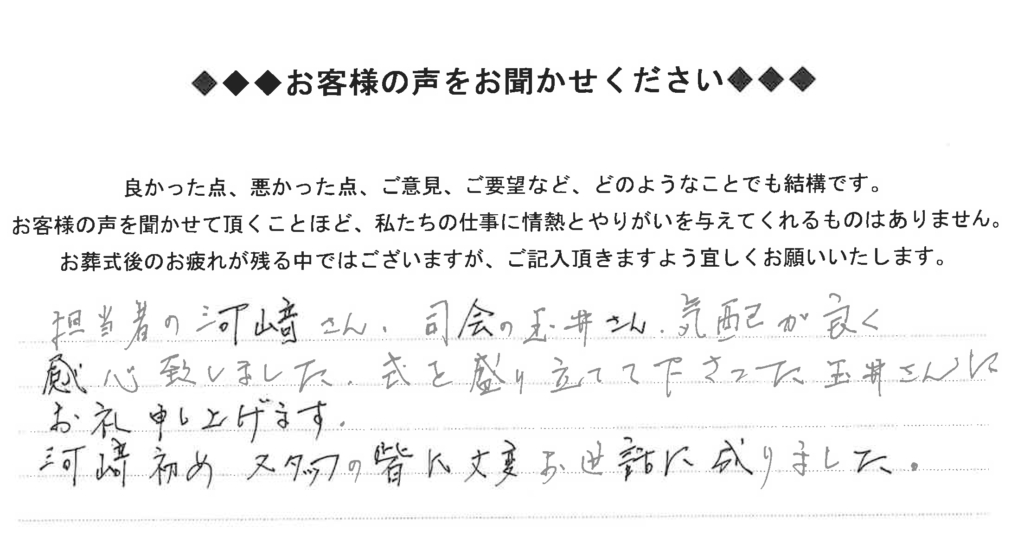 ◆◆◆お客様の声をお聞かせください◆◆◆
良かった点、悪かった点、ご意見、ご要望など、どのようなことでも結構です。
お客様の声を聞かせて頂くことほど、私たちの仕事に情熱とやりがいを与えてくれるものはありません。
お葬式後のお疲れが残る中ではございますが、ご記入頂きますよう宜しくお願いいたします。
担当者の河﨑さん、司会の玉井さん、気配が良く
感心致しました。式を盛り立てて下さった玉井さんに
お礼申し上げます。
河﨑初めスタッフの皆に大変お世話に成りました。